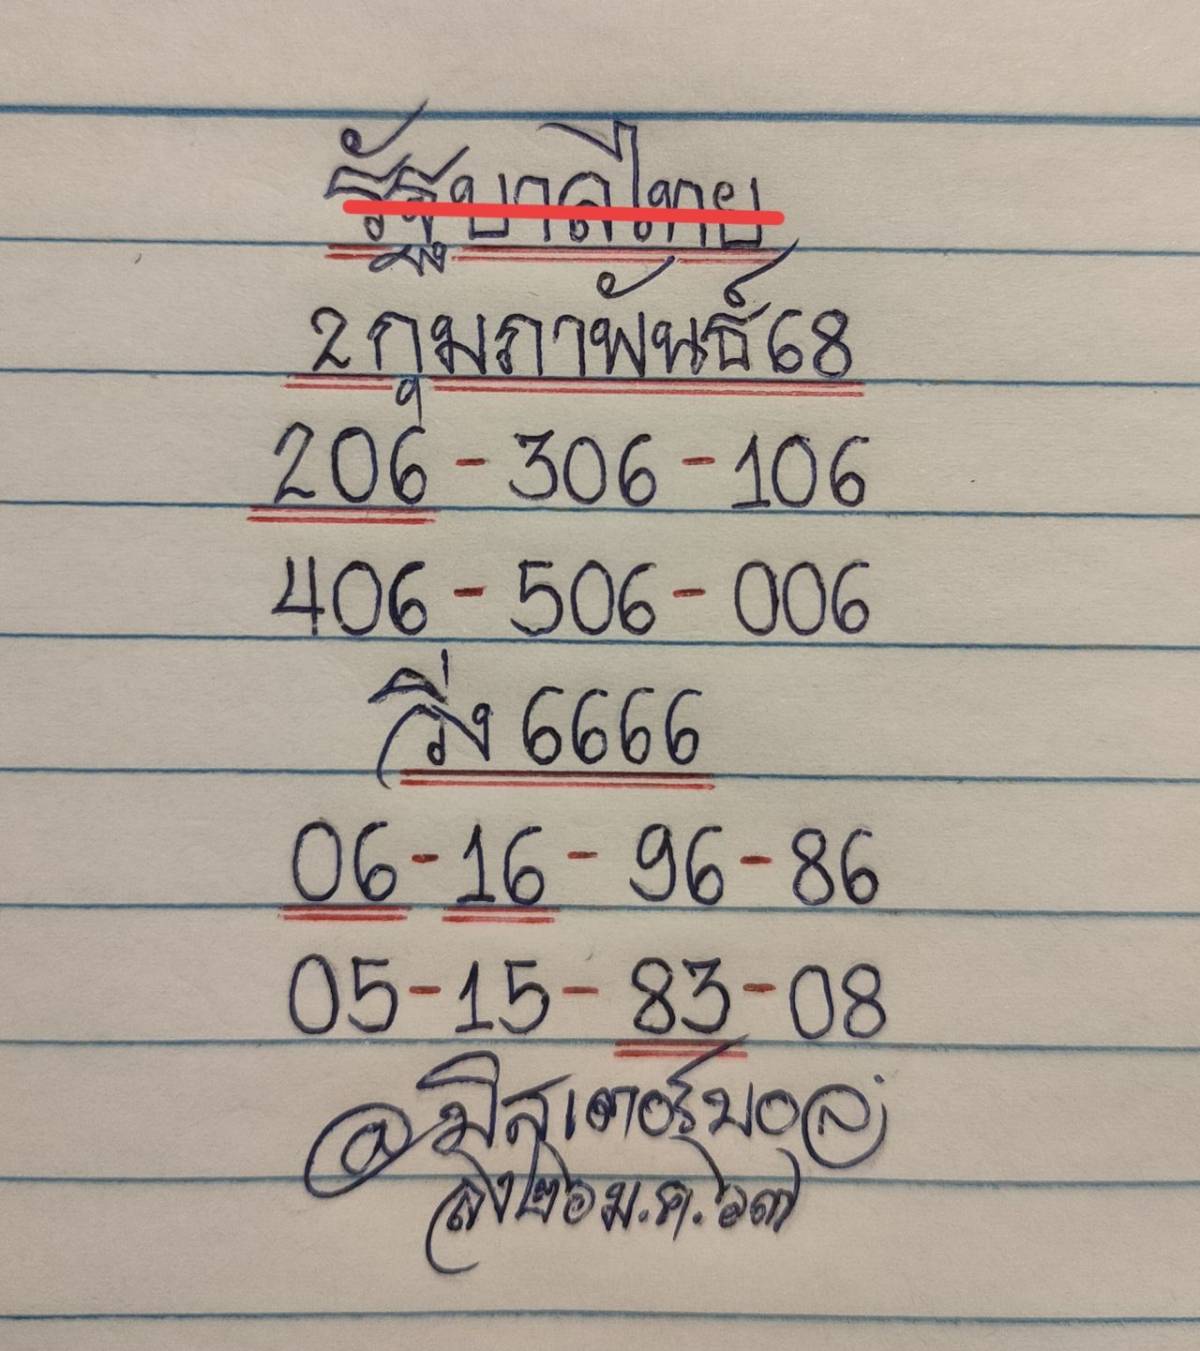 รัฐบาลไทย
2กุมภาพันธ์68
206-306-106
406-506-006
วิ่ง 6666
06-16-96-86
05-15-83-08
@มิสเตอร์บอล